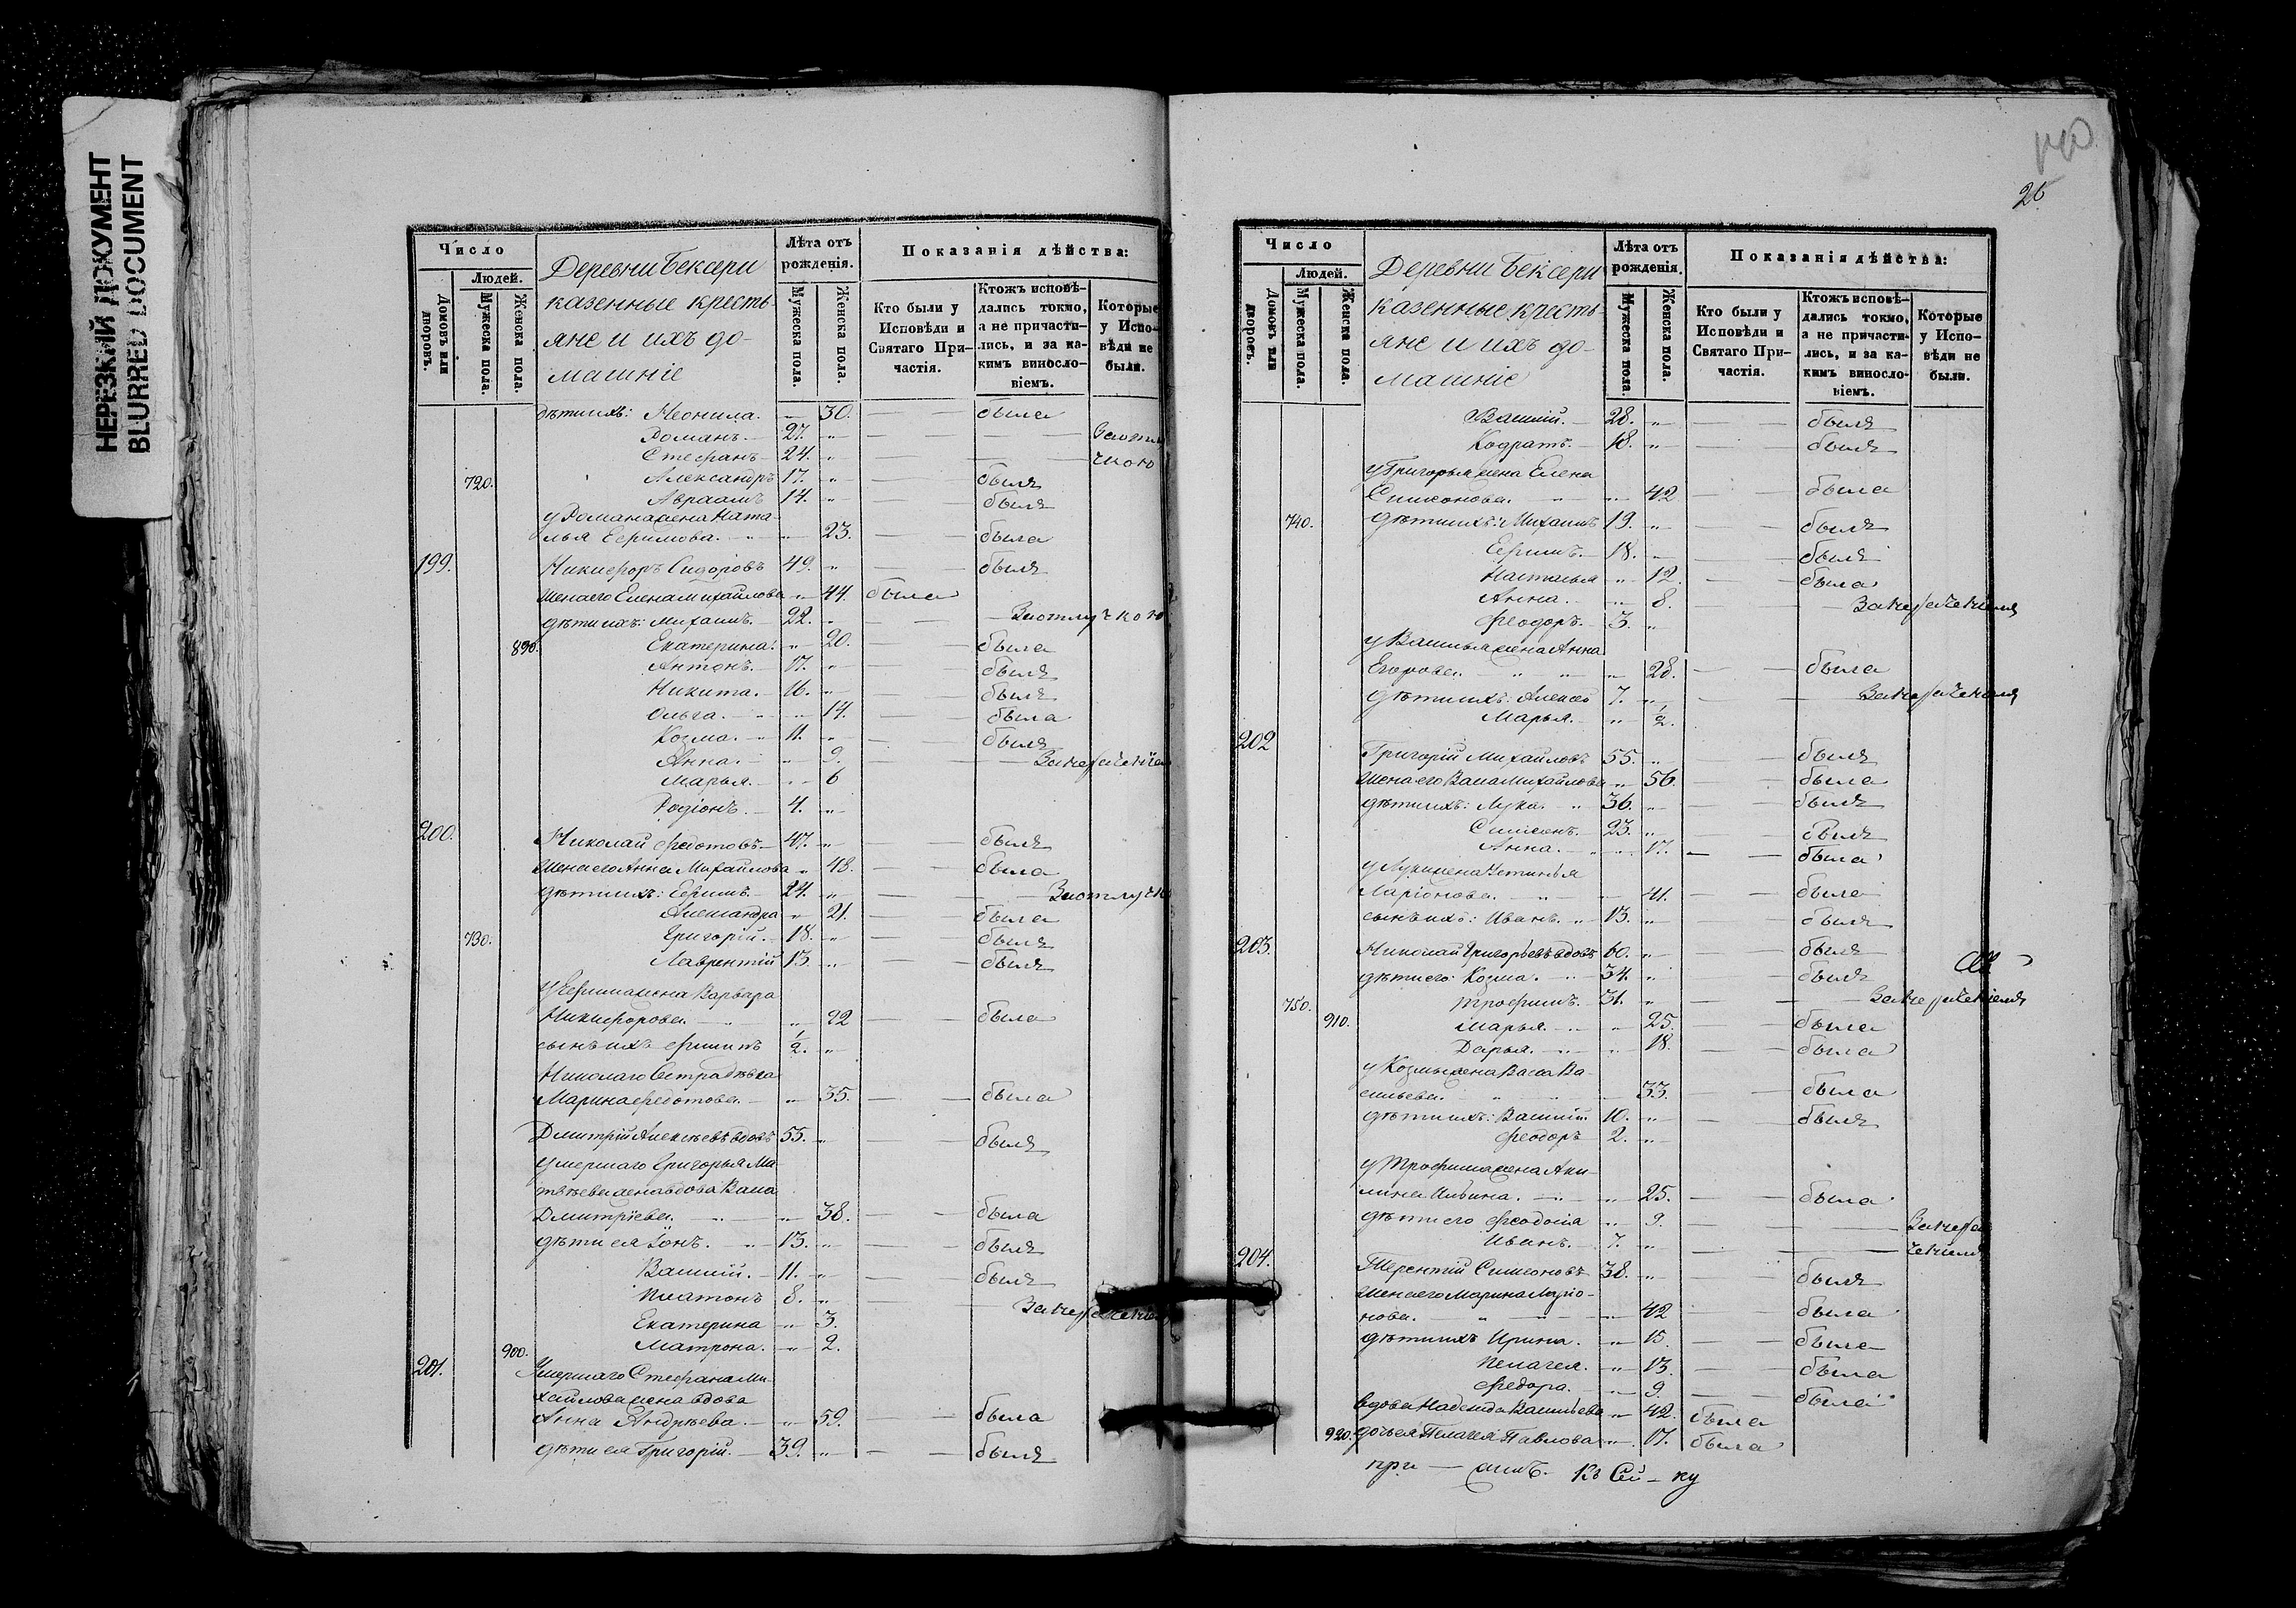 НЕРЕЗКИЙ ДОКУМЕНТ
BLURRED DOCUMENT
Число
Людей.
Домовъ или дворовъ.
Мужеска пола.
Женска пола.
Деревни Бексери
казенные кресть-
яне и ихъ до-
машніе
Лѣта отъ рожденія.
Мужеска пола.
Женска пола.
Показанія дѣйства:
Кто были у Исповѣди и Святаго При-частія.
Ктожъ исповѣ-дались токмо, а не причасти-лись, и за ка-кимъ винословіемъ.
Которые у Испо-вѣди не были.
дѣти ихъ: Неонила. „ 30. — — была
Романъ. 27. „ — — — Заотлу
Стефанъ 24. „ — — — чкою
720. Александръ 17. „ — — былъ
Авраамъ 14. „ — — былъ
у Романа жена Ната-
лья Ефимова. „ 23. — — была
199. Никифоръ Сидоровъ 49. „ — — былъ
Жена его Елена Михайлова „ 44. была
дѣти ихъ: Михаилъ. 22. „ — — — Заотлучкою
890. Екатерина. „ 20. — — была
Антонъ. 17. „ — — былъ
Никита. 16. „ — — былъ
Ольга. „ 14. — — была
Козма. „ 11. „ — — былъ
Анна. „ 9. — — —
Марья. „ 6
Родіонъ. 4. „
200. Николай Федотовъ. 47. „ — — былъ
Жена его Анна Михайлова „ 48. — — была
дѣти ихъ: Ефимъ. 24. „ — — — Заотлучк
Александра „ 21. — — была
730. Григорій. 18. „ — — былъ
Лаврентій 13. „ — — былъ
у Ефима жена Варвара
Никифорова. „ 22 — — была
сынъ ихъ Филипъ 1/2. „
Николаго Сестра дѣвка
Марина Федотова. „ 35. — — была
Дмитрій Алексѣевъ вдовъ 55. „ — — былъ
Умершаго Григорья Ма-
твѣева жена вдова Васа
Дмитріева. „ 38. — — была
дѣти ея Іонъ. „ 13. „ — — былъ
Василій. 11. „ — — былъ
Платонъ 8. „ — — —
Екатерина „ 3.
900. Матрона. „ 2.
201. Умершаго Стефана Ми-
хайлова жена вдова
Анна Андрѣева. „ 59. — была
дѣти ея Григорій. 39. „ — — былъ
26.
Число
Людей.
Домовъ или дворовъ.
Мужеска пола.
Женска пола.
Деревни Бексери
казенные кресть-
яне и ихъ до-
машніе
Лѣта отъ рожденія.
Мужеска пола.
Женска пола.
Показанія дѣйства:
Кто были у Исповѣди и Святаго При-частія.
Ктожъ исповѣ-дались токмо, а не причасти-лись, и за ка-кимъ винословіемъ.
Которые у Испо-вѣди не были.
Василій. 28. „ — — былъ
Кодратъ. 18. „ — — былъ
у Григорья жена Елена
Симеонова. „ 42 — — была
740. дѣти ихъ: Михаилъ 19. „ — былъ
Ефимъ. 18. „ — былъ
Настасья „ 12. — — была
Анна. „ 8. — — —
Феодоръ. 3. „
у Василья жена Анна
Егорова. „ 28. — — была
дѣти ихъ. Алексей 7. „ — — —
Марья. „ 1/2.
202
Григорій Михайловъ 55. „ — былъ
Жена его Васа Михайлова „ 56. — была
дѣти ихъ: Лука. „ 36. „ — былъ
Симеонъ. 23. „ — былъ
Анна. „ 17. — — была
у Луки жена Устинья
Ларіонова. „ 41. — — была
сынъ ихъ: Иванъ. „ 13. „ — былъ
203. Николай Григорьевъ вдовъ 60. „ — — былъ
дѣти его: Козма. „ 34. „ — былъ
750. Трофимъ. 31. „ — — —
910. Марья. „ 25. — — была
Дарья. „ 18. — — была
у Козмы жена Васа Ва-
сильева. „ 33. — — была
дѣти ихъ: Василій. 10. „ — — былъ
Феодоръ 2. „
у Трофима жена Аки-
лина Ильина. „ 25. — — была
дѣти его Феодосія „ 9. — —
Иванъ. 7. „ — —
204. Терентій Симеоновъ 38. „ — — былъ
Жена его Марина Ларіо-
нова. „ 42 — — была
дѣти ихъ Ирина. „ 15. — — была
Пелагея. „ 13. — — была
Федора. „ 9. — — была
вдова Надежда Васильева „ 42. была
920. дочь ея Пелагея Павлова „ 17. была